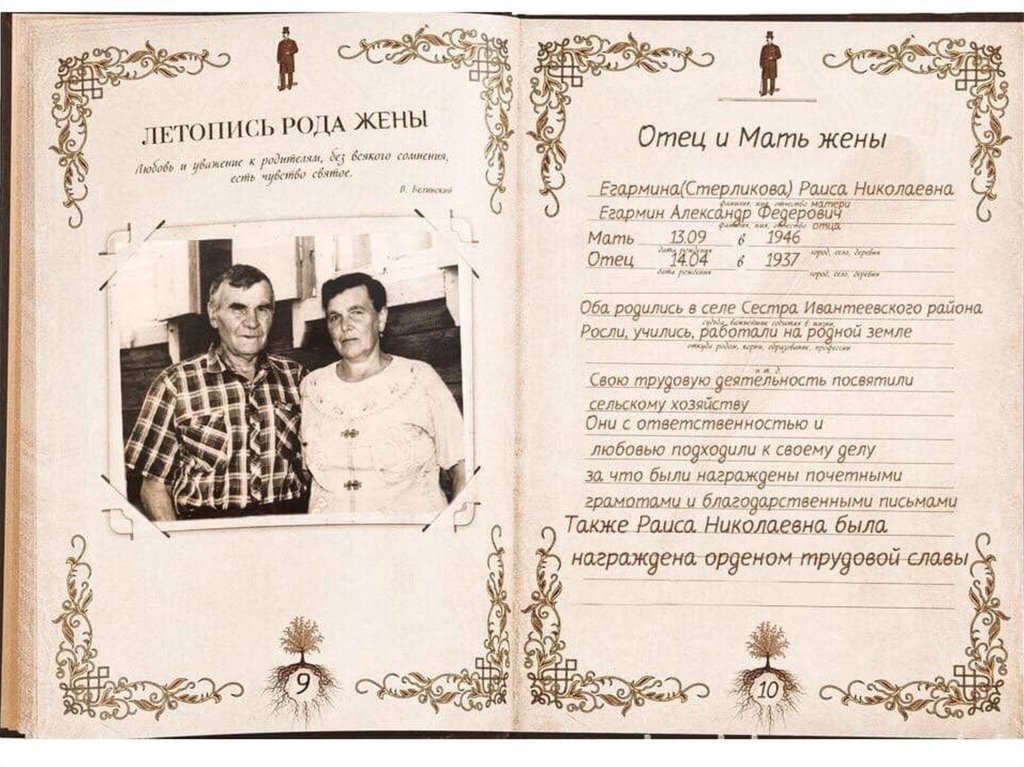 ЛЕТОПИСЬ РОДА ЖЕНЫ
Любовь и уважение к родителям, без всякого сомнения,
есть чувство святое.
В. Белинский
9
Отец и Мать жены
Егармина(Стерликова) Раиса Николаевна
фамилия, имя, отчество матери
Егармин Александр Федерович
фамилия, имя, отчество отца
Мать 13.09 в 1946
дата рождения город, село, деревня
Отец 14.04 в 1937
дата рождения город, село, деревня
Оба родились в селе Сестра Ивантеевского района
судьба, важнейшие события в жизни,
Росли, учились, работали на родной земле
откуда родом, корни, образование, профессии
и т. д.
Свою трудовую деятельность посвятили
сельскому хозяйству
Они с ответственностью и
любовью подходили к своему делу
за что были награждены почетными
грамотами и благодарственными письмами
Также Раиса Николаевна была
награждена орденом трудовой славы
10